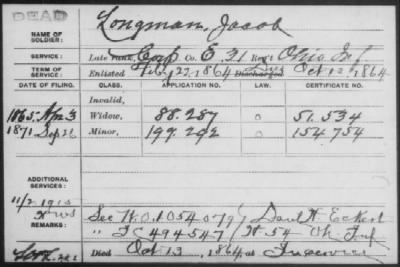 DEAD
NAME OF SOLDIER: Longman, Jacob
SERVICE: Late Rank, Corp Co. E. 31 Reg't Ohio Inf
TERM OF SERVICE: Enlisted Feb 22, 1864 Discharged Died Oct 13, 1864
DATE OF FILING. CLASS. APPLICATION NO. LAW. CERTIFICATE NO.
Invalid,
1865, Apr 3 Widow, 88.287 51.534
1871 Sep 26 Minor, 199.292 154.754
ADDITIONAL SERVICES:
11/2 1910
See W.O. 1054079 Danl W. Eckert
" I C 494547 H 54 Oh Inf
REMARKS:
Died Oct 13, 1864, at